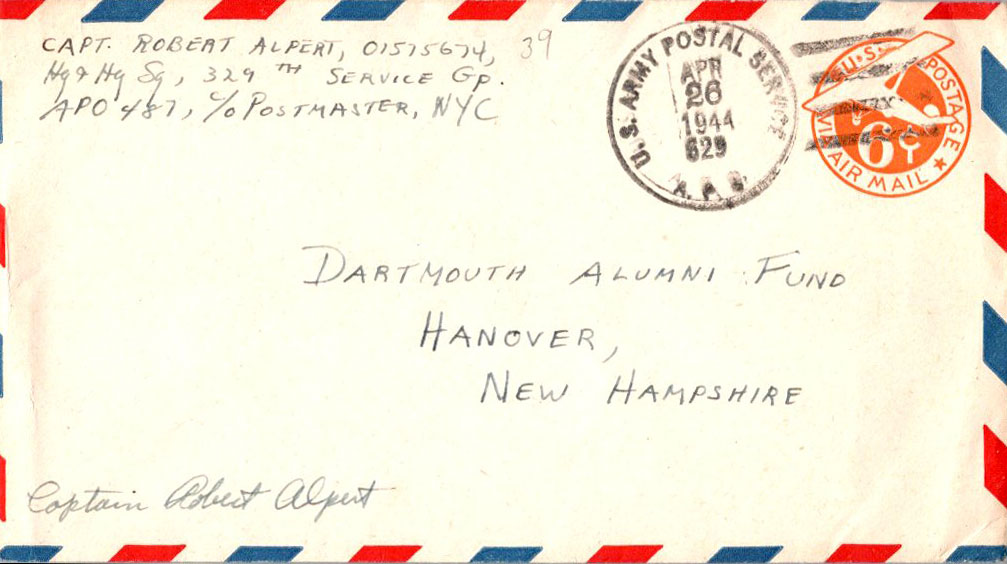 CAPT. ROBERT ALPERT, O1575674, 39
Hq & Hq Sq, 329TH SERVICE Gp.
APO 487, c/o POSTMASTER, NYC
U.S. ARMY POSTAL SERVICE
APR
26
1944
629
A.P.O.
U.S. POSTAGE
VIA AIR MAIL
6¢
DARTMOUTH ALUMNI FUND
HANOVER,
NEW HAMPSHIRE
Captain Robert Alpert